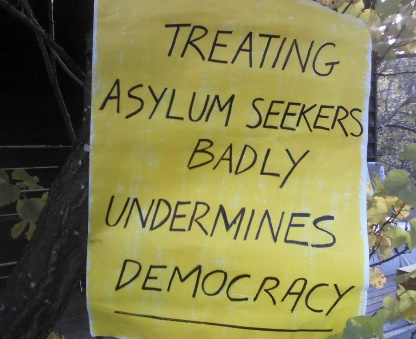 TREATING
ASYLUM SEEKERS
BADLY
UNDERMINES
DEMOCRACY